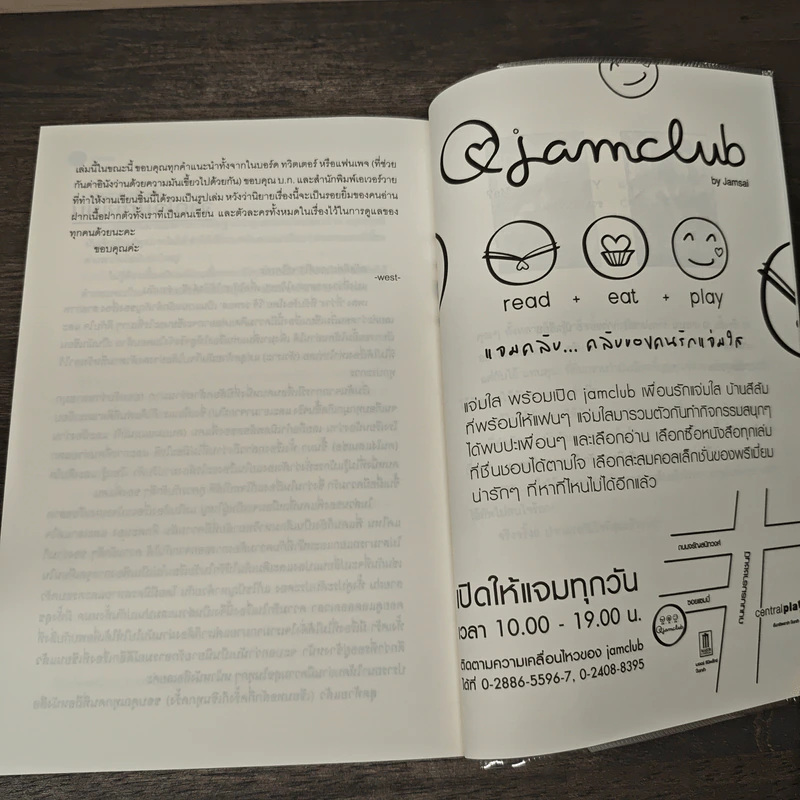 เล่มนี้ในขณะนี้ ขอบคุณทุกคำแนะนำทั้งจากในบอร์ด ทวิตเตอร์ หรือแฟนเพจ (ที่ช่วย
กันด่าอินังว่านด้วยความมันเขี้ยวไปด้วยกัน) ขอบคุณ บ.ก. และสำนักพิมพ์เอเวอร์วาย
ที่ทำให้งานเขียนชิ้นนี้ได้รวมเป็นรูปเล่ม หวังว่านิยายเรื่องนี้จะเป็นรอยยิ้มของคนอ่าน
ฝากเนื้อฝากตัวทั้งเราที่เป็นคนเขียน และตัวละครทั้งหมดในเรื่องไว้ในการดูแลของ
ทุกคนด้วยนะคะ
ขอบคุณค่ะ
-west-
@jamclub
by Jamsai
read + eat + play
แจมคลับ... คลับของคนรักแจ่มใส
แจ่มใส พร้อมเปิด jamclub เพื่อนรักแจ่มใส บ้านสีส้ม
ที่พร้อมให้แฟนๆ แจ่มใสมารวมตัวกันทำกิจกรรมสนุกๆ
ได้พบปะเพื่อนๆ และเลือกอ่าน เลือกซื้อหนังสือทุกเล่ม
ที่ชื่นชอบได้ตามใจ เลือกสะสมคอลเล็กชั่นของพรีเมี่ยม
น่ารักๆ ที่หาที่ไหนไม่ได้อีกแล้ว
เปิดให้แจมทุกวัน
เวลา 10.00 - 19.00 น.
ติดตามความเคลื่อนไหวของ jamclub
ได้ที่ 0-2886-5596-7, 0-2408-8395
ถนนจรัญสนิทวงศ์
ซอยแฮมมี่
jamclub
centralpla